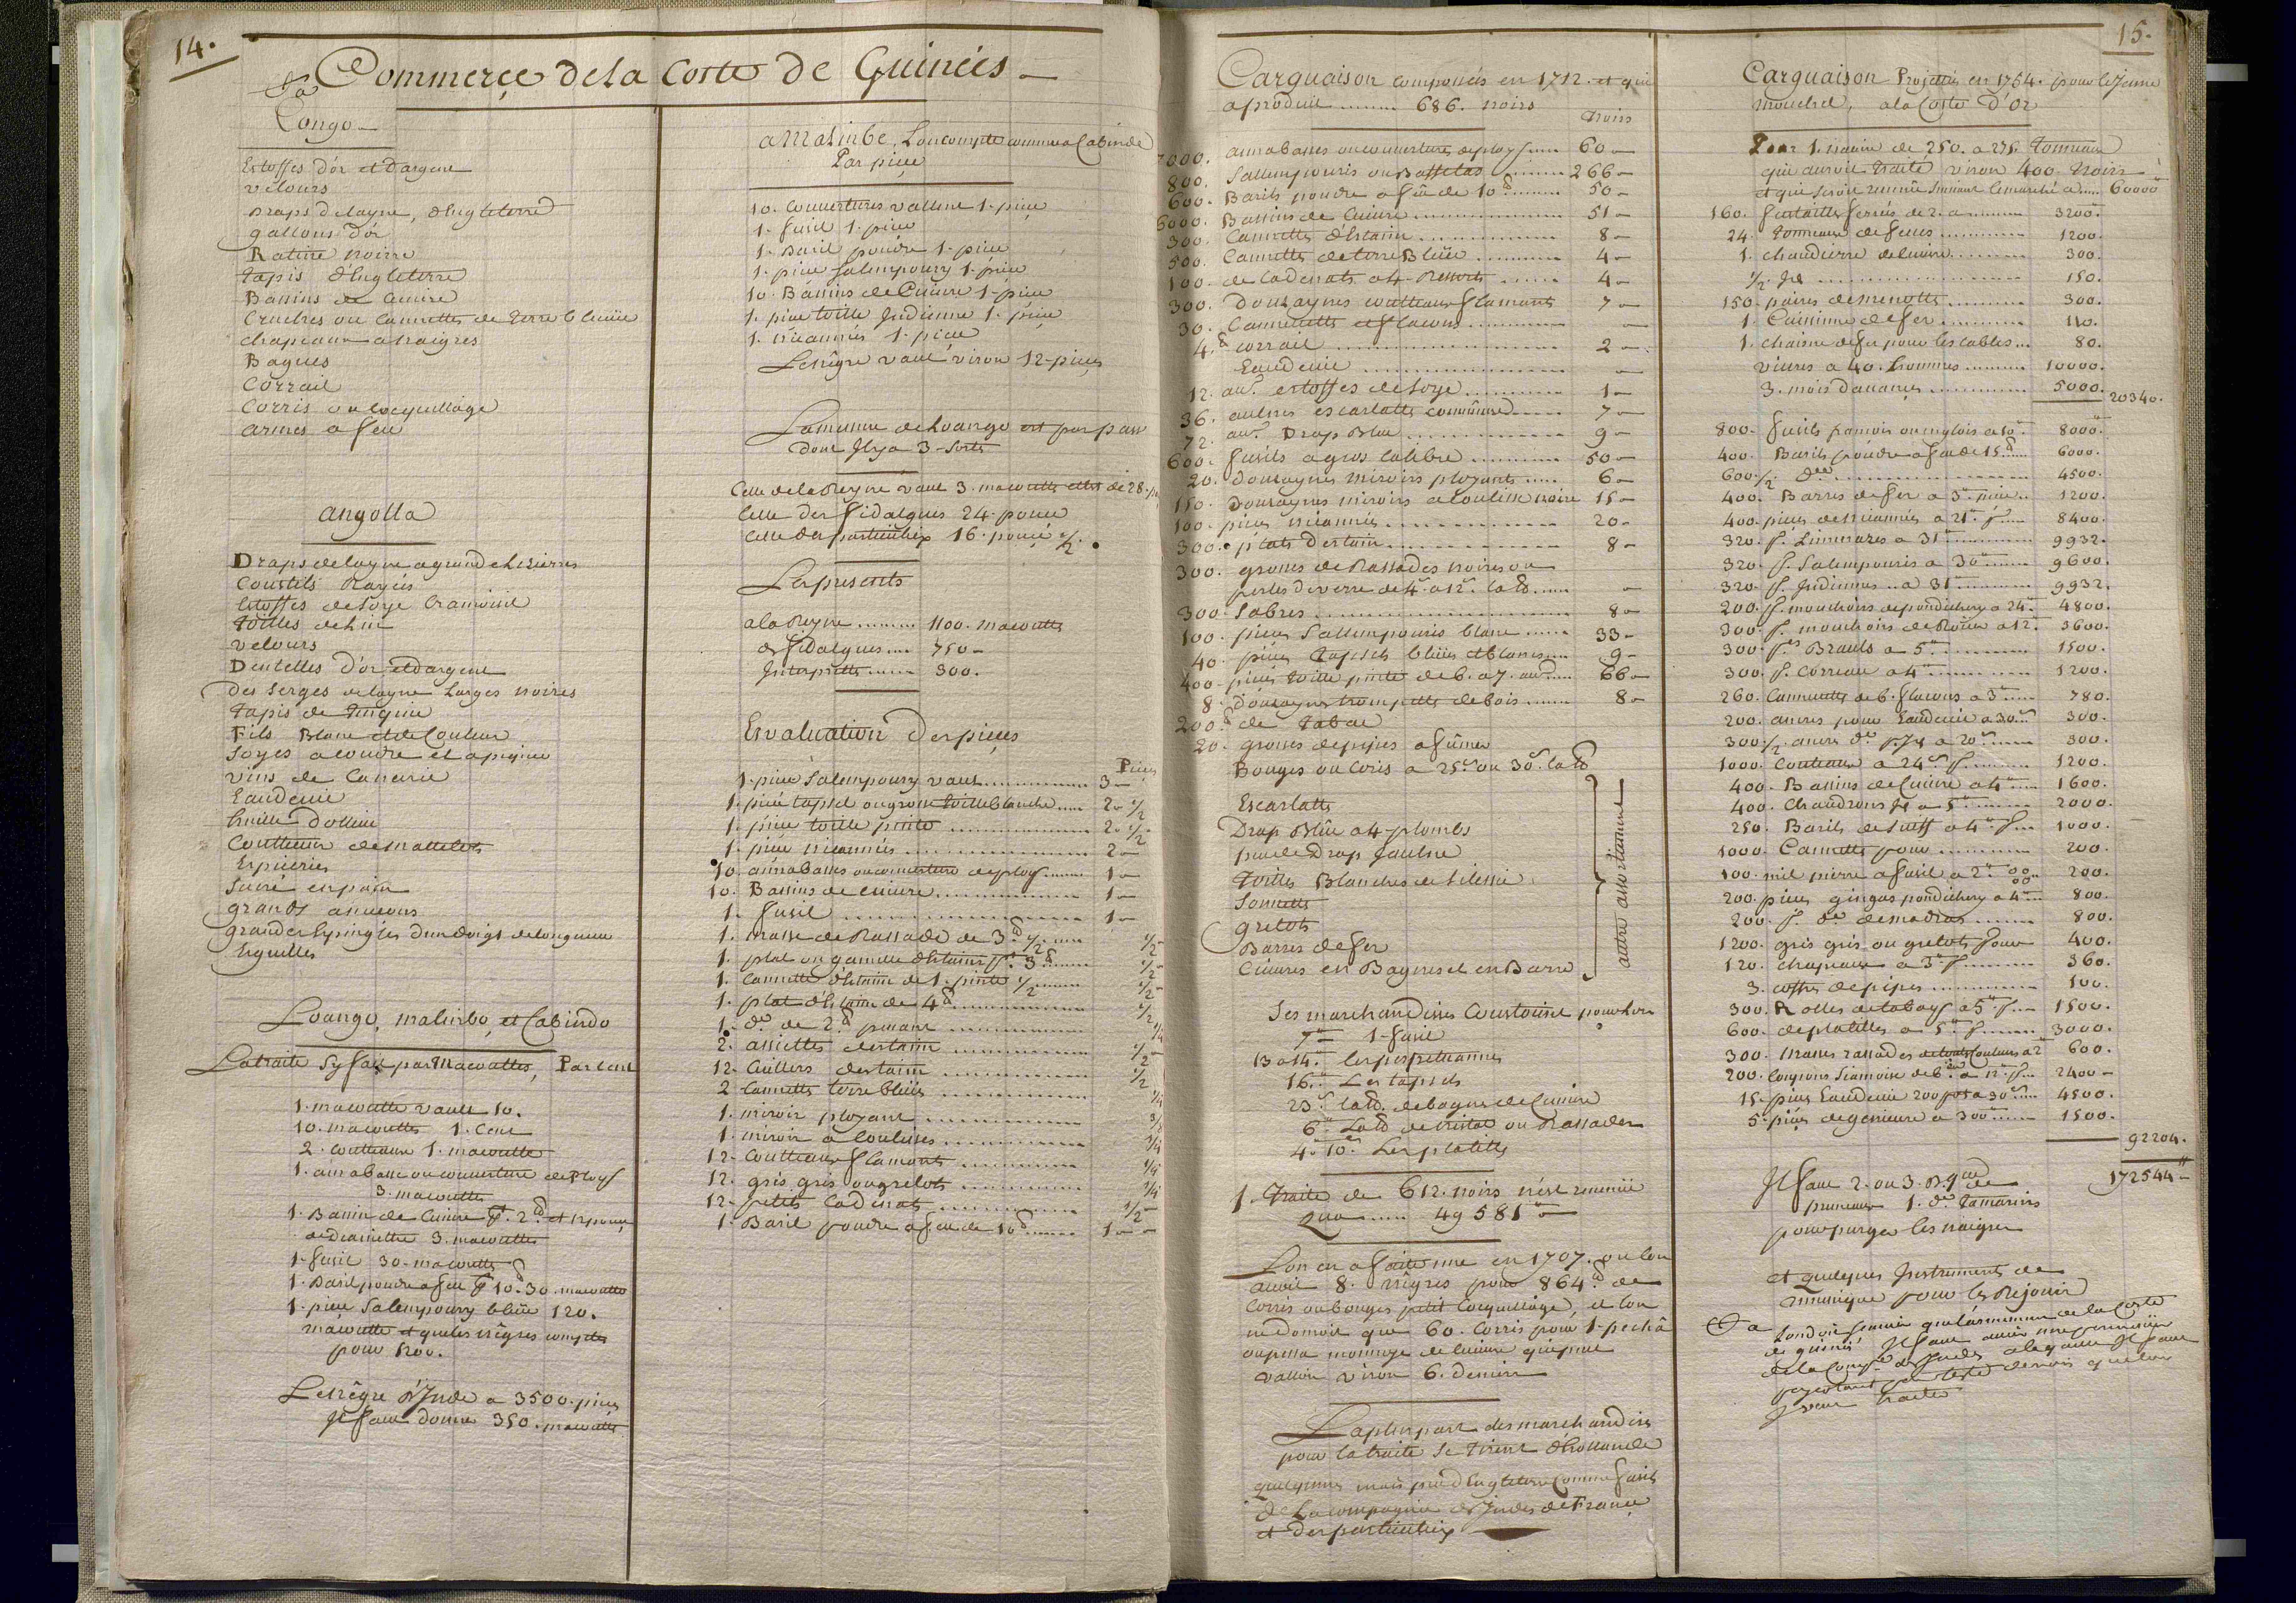 14.
Commerce de la Coste de Guinées
Sa
Congo
Estoffes d'or et d'argent
velours
Draps de layne, d'Engleterre
gallons d'or
Ratine noirre
tapis d'Engleterre
Bassins de Cuivre
Cruches ou Cannettes de terre bleüe
chapeaux a naigres
Bagues
Corrail
Corris ou Cocquillage
armes a feu
angolla
Draps de layne a grande Lisierres
Coustils Rayés
Estoffes de soye Cramoisie
toilles de Lin
velours
Dentelles d'or et d'argent
des serges de layne Larges noires
tapis de turquie
Fils Blanc et de Couleur
soyes a coudre et a piquer
vins de Canarie
Eaudevie
huille d'ollive
Coutteaux de mattelots
Espiceries
sucre en pain
grands ameçons
grandes Epingles d'un doigt de longueur
Eguilles
Loango, malimbo, et Cabindo
La traite s'y fait par macouttes, Par Cent
1. macoutte vault 10.
10. macouttes 1. Cent
2. Coutteaux 1. macoutte
1. annabasse ou couverture de Ploys
3. macouttes
1. Bassin de Cuivre pt. 2 lb et
de diamettre 3. macouttes
1. fusil 30. macouttes
1. Baril poudre a feu pt 10 lb 30. macouttes
1. piece salempoury bleüe 120.
macoutte et que les nêgres comptes
pour 1200.
Le nêgre d'Inde a 3500. pieces
Il faut donner 350. macouttes
a Malimbe, L'on compte comme a Cabinde
Par piece
10. Couvertures vallent 1. piece
1. fusil 1. piece
1. Baril poudre 1. piece
1. piece salempoury 1. piece
10. Bassins de Cuivre 1. piece
1. piece toille Indienne 1. piece
1. nicannés 1. piece
Le nêgre vaut viron 12. pieces
La mesure de Loango est par pan
dont Il y a 3. sortes
Celle de la Reyne vault 3. macouttes et est de 28. po
Celle des fidalgues 24. pouce
Celle des particuliers 16. pouce 1/2.
Les presents
a la Reyne ........ 1100. macouttes
des fidalgues .... 750
Interprettes ...... 300.
Evaluation des pieces
Pieces
1. piece salempoury vaut ........ 3
1. piece tapsel ou grosse toille blanche .... 2. 1/2
1. piece toille peinte ........ 2. 1/2
1. piece nicannés ........ 2
10. annabasses ou couverture de ploys ..... 1
10. Bassins de cuivre ........ 1
1. fusil ........ 1
1. masse de Rassade de 3 lb 1/2 .... 1/2
1. plat ou gamelle d'Estaim pt. 3 lb ..... 1/2
1. Cannette d'Estaim de 1. pinte 1/2 ..... 1/2
1. plat d'Estaim de 4 lb ........ 1/2
1. do de 2 lb pesant ........ 1/4
2. assiettes d'estaim ........ 1/2
12. Cuillers d'estaim ........ 1/2
2. Cannettes terre bleüe ........ 1/4
1. miroir ployant ........ 3/8
1. miroir a Coulisses ........ 3/4
12. Coutteaux flamants ........ 1/4
12. gris gris ou grelots ........ 1/4
12. petits Cadenats ........ 1/2
1. Baril poudre a feu de 10 lb ...... 1
15.
Carguaison composées en 1712. et qui
a produit ........ 686. noirs
noirs
7000. annabasses ou couvertures de ploys ..... 60
800. Sallempouris ou Baffetas ....... 266
600. Barils poudre a feu de 10 lb ....... 50
6000. Bassins de Cuivre ........ 51
300. Cannettes d'Estaim ........ 8
500. Cannettes de terre Bleüe ........ 4
100. de Cadenats a 4. Ressorts ...... 4
300. Douzaynes coutteaux flamants 7
30. Cannevettes et flacons ........
4. lb corrail ........ 2
Eaudevie ........
12. aus. estoffes de soye ........ 1
36. aulnes escarlatte commune ..... 7
72. aus. Drap Bleu ........ 9
600. fusils a gros calibre ........ 50
20. Douzaynes miroirs ployants ..... 6
150. Douzaynes miroirs a coulisse noire 15
100. pieces nicannés ........ 20
300. plats d'estaim ........ 8
300. grosses de Rassades noires ou
perles de verre de 4 a 12 la lb .....
300. Sabres ........ 8
100. pieces Sallempouris blanc ..... 33
40. pieces tapsels bleües et blancs .... 9
400. pieces toille peinte de 6. a 7. aus .... 66
8. Douzaynes trompettes de bois ..... 8
200. lb de Tabac
20. grosses de pipes a fumer
Bouges ou Coris a 25 s ou 30 s la lb
Escarlatte
Drap Bleu a 4. plombs
peu de Drap Jaulne
toilles Blanches de silesie
Sonnettes
grelots
Barres de fer
Cuivres en Bagues et en Barre
autre assortiment
Ses marchandises Coustoient pour lors
7 1. fusil
13 a 14 les perpetuannes
16 Les tapsels
23 s la lb. de bagues de Cuivre
6 La lb de cristal ou Rassades
4. 10 s. Les platilles
1. Traite de 612. noirs n'est revenüe
Qua ...... 49581
L'on en a faite une en 1707. ou l'on
avoit 8. nêgres pour 864 lb de
Corris ou bouges petit Cocquillage, et l'on
ne donnoit que 60. Corris pour 1. pechâ
ou pessa monnoye de Cuivre qui peut
valloir viron 6. deniers
La plus part des marchandises
pour la traite se tirent d'hollande
quelques unes peu d'Engleterre Comme fusils
De La compagnie des Indes de France
et des particuliers
Carguaison Projettée en 1754. pour le Jeune
mouchel, a la Coste d'Or
Pour 1. navire de 250. a 275. tonneaux
qui auroit traité viron 400. noirs
et qui seroit revenüe suivant le marché a ..... 60000
160. fustailles ferrées de 2. a ....... 3200.
24. tonneaux de feves ........ 1200.
1. chaudierre de cuivre ........ 300.
1/2. Id ........ 150.
150. paires de menottes ........ 300.
1. Cuisinne de fer ........ 110.
1. chaisne de fer pour les cables ... 80.
vivres a 40. hommes ........ 10000.
3. mois d'avances ........ 5000.
20340.
800. fusils danois ou englois a 10 8000.
400. Barils poudre a feu de 15 lb ..... 6000.
600. 1/2 do ........ 4500.
400. Barres de fer a 3 piece ... 1200.
400. pieces de nicannés a 21 p ..... 8400.
320. p. Limenaxes a 31 ........ 9932.
320. p. Salempouris a 30 ........ 9600.
320. p. Indiennes a 31 ........ 9932.
200. p. mouchoirs de pondichery a 24 4800.
300. p. mouchoirs de Roüen a 12 3600.
300. pes Brauls a 5 ........ 1500.
300. p. Correaux a 4 ........ 1200.
260. Cannevettes de 6. flacons a 3 ..... 780.
200. ancres pour Eaudevie a 30 s .... 300.
300. 1/2. ancre do p. Id a 20 s ..... 300.
1000. Couteaux a 24 s p ........ 1200.
400. Bassins de Cuivre a 4 ..... 1600.
400. Chaudrons Id a 5 ........ 2000.
250. Barils de suiff a 4 p ... 1000.
1000. Cannettes pour ........ 200.
100. mil pierre a fusil a 2 00/00 .. 200.
200. pieces gingas pondichery a 4 .... 800.
200. p. do de madras ........ 800.
1200. gris gris ou grelots pour 400.
120. chapeaux a 3 p ........ 360.
3. coffres de pipes ........ 100.
300. Rolles de tabacq a 5 p .... 1500.
600. de platilles a 5 p ........ 3000.
300. Masses rassades de toutes Couleurs a 2 600.
200. Couppons Siamoise de 6 au a 12 p ... 2400
15. pieces Eaudevie 200 pots a 30 s ..... 4500.
5. pieces de genievre a 300 ...... 1500.
92204.
172544
Il faut 2. ou 3. Bques de
pruneaux 1. do Tamarins
pour purger les naigres
et quelques Instruments de
musique pour les Rejouir
Sa
L'on doit scavoir que la commerce de la Coste
de guinée Il faut avoir une permission
de la Compie des Indes a laquelle Il faut
payer tant par teste de noirs que l'on
veut traiter